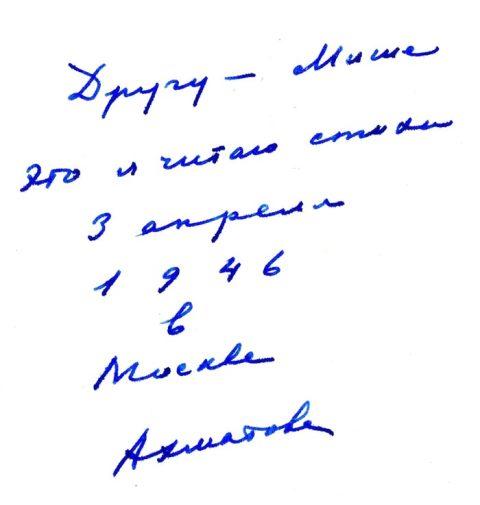 Другу — Мише
Это я читаю стихи
3 апреля
1946
в
Москве
Ахматова